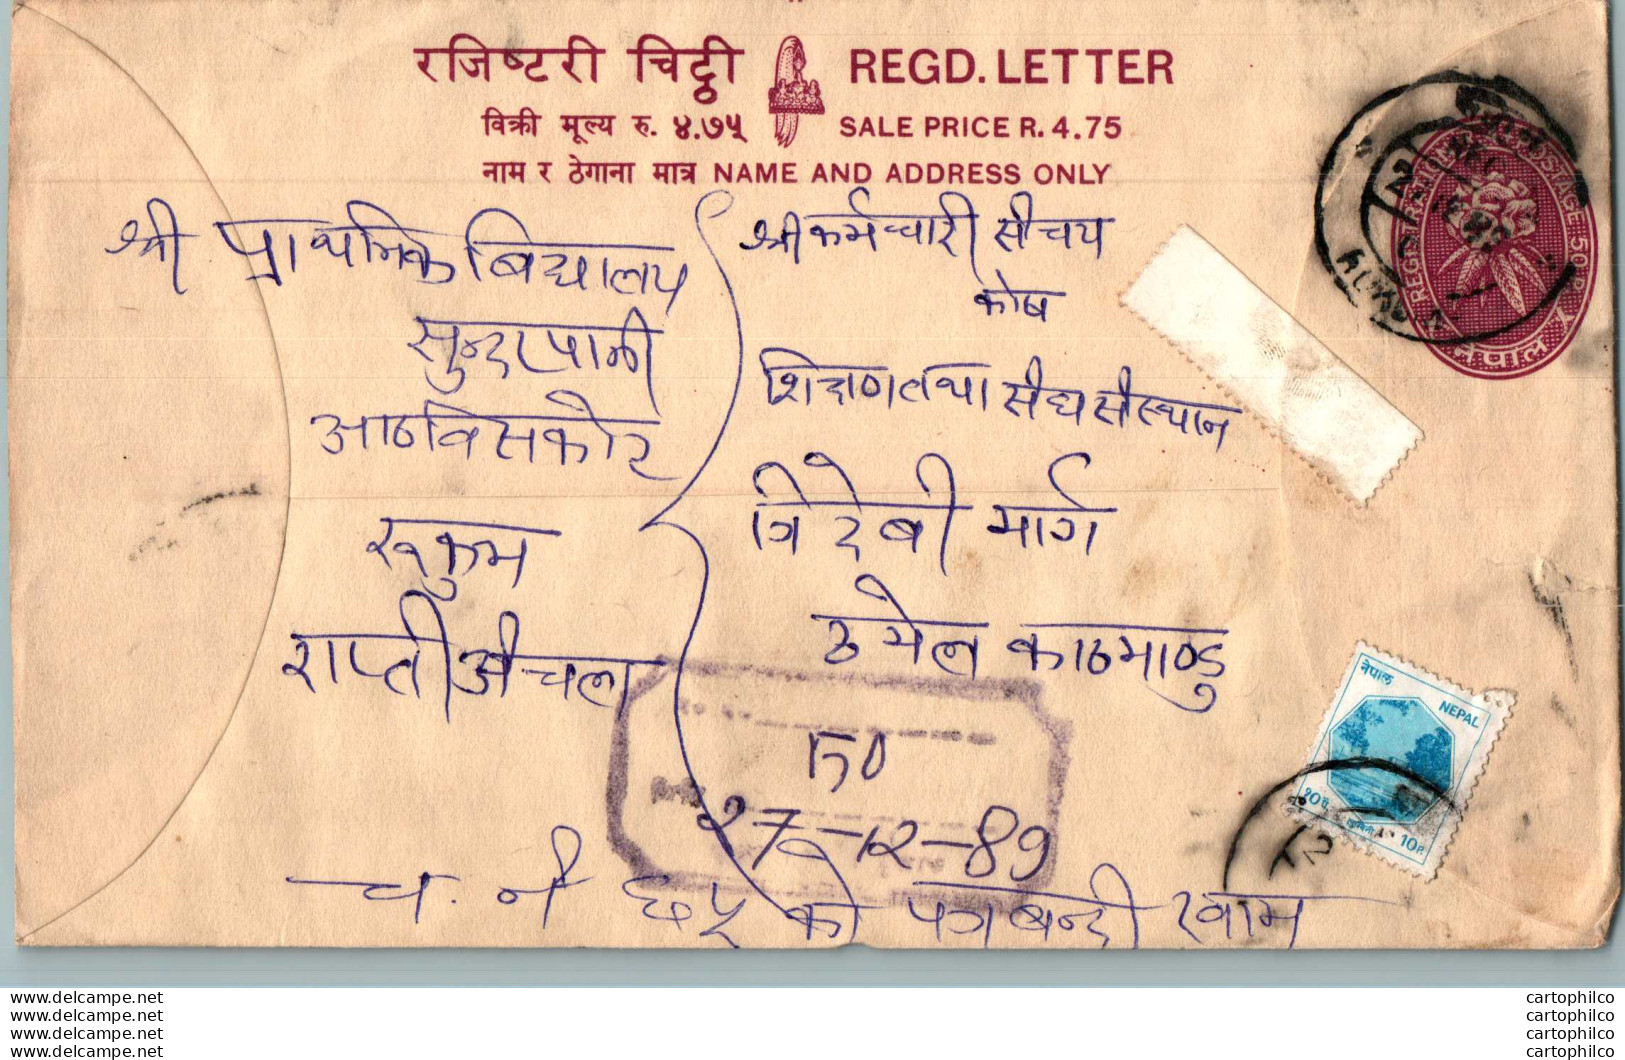 रजिष्टरी चिट्ठी REGD. LETTER
विक्री मूल्य रु. ४.७५ SALE PRICE R. 4.75
नाम र ठेगाना मात्र NAME AND ADDRESS ONLY
श्री प्राथमिक बिद्यालय
सुन्दरपाली
आठविसकोट
रूकुम
राप्ती अंचल
श्री कर्मचारी संचय
कोष
शिक्षण तथा सैघ संस्थान
त्रिदेबी मार्ग
ठमेल काठमाण्डु
150
27-12-89
च. नं ६५ को पत्र बन्दी खाम
नेपाल
NEPAL
१० पै.
10 P.
नेपाल
www.delcampe.net
www.delcampe.net
www.delcampe.net
www.delcampe.net
cartophilco
cartophilco
cartophilco
cartophilco